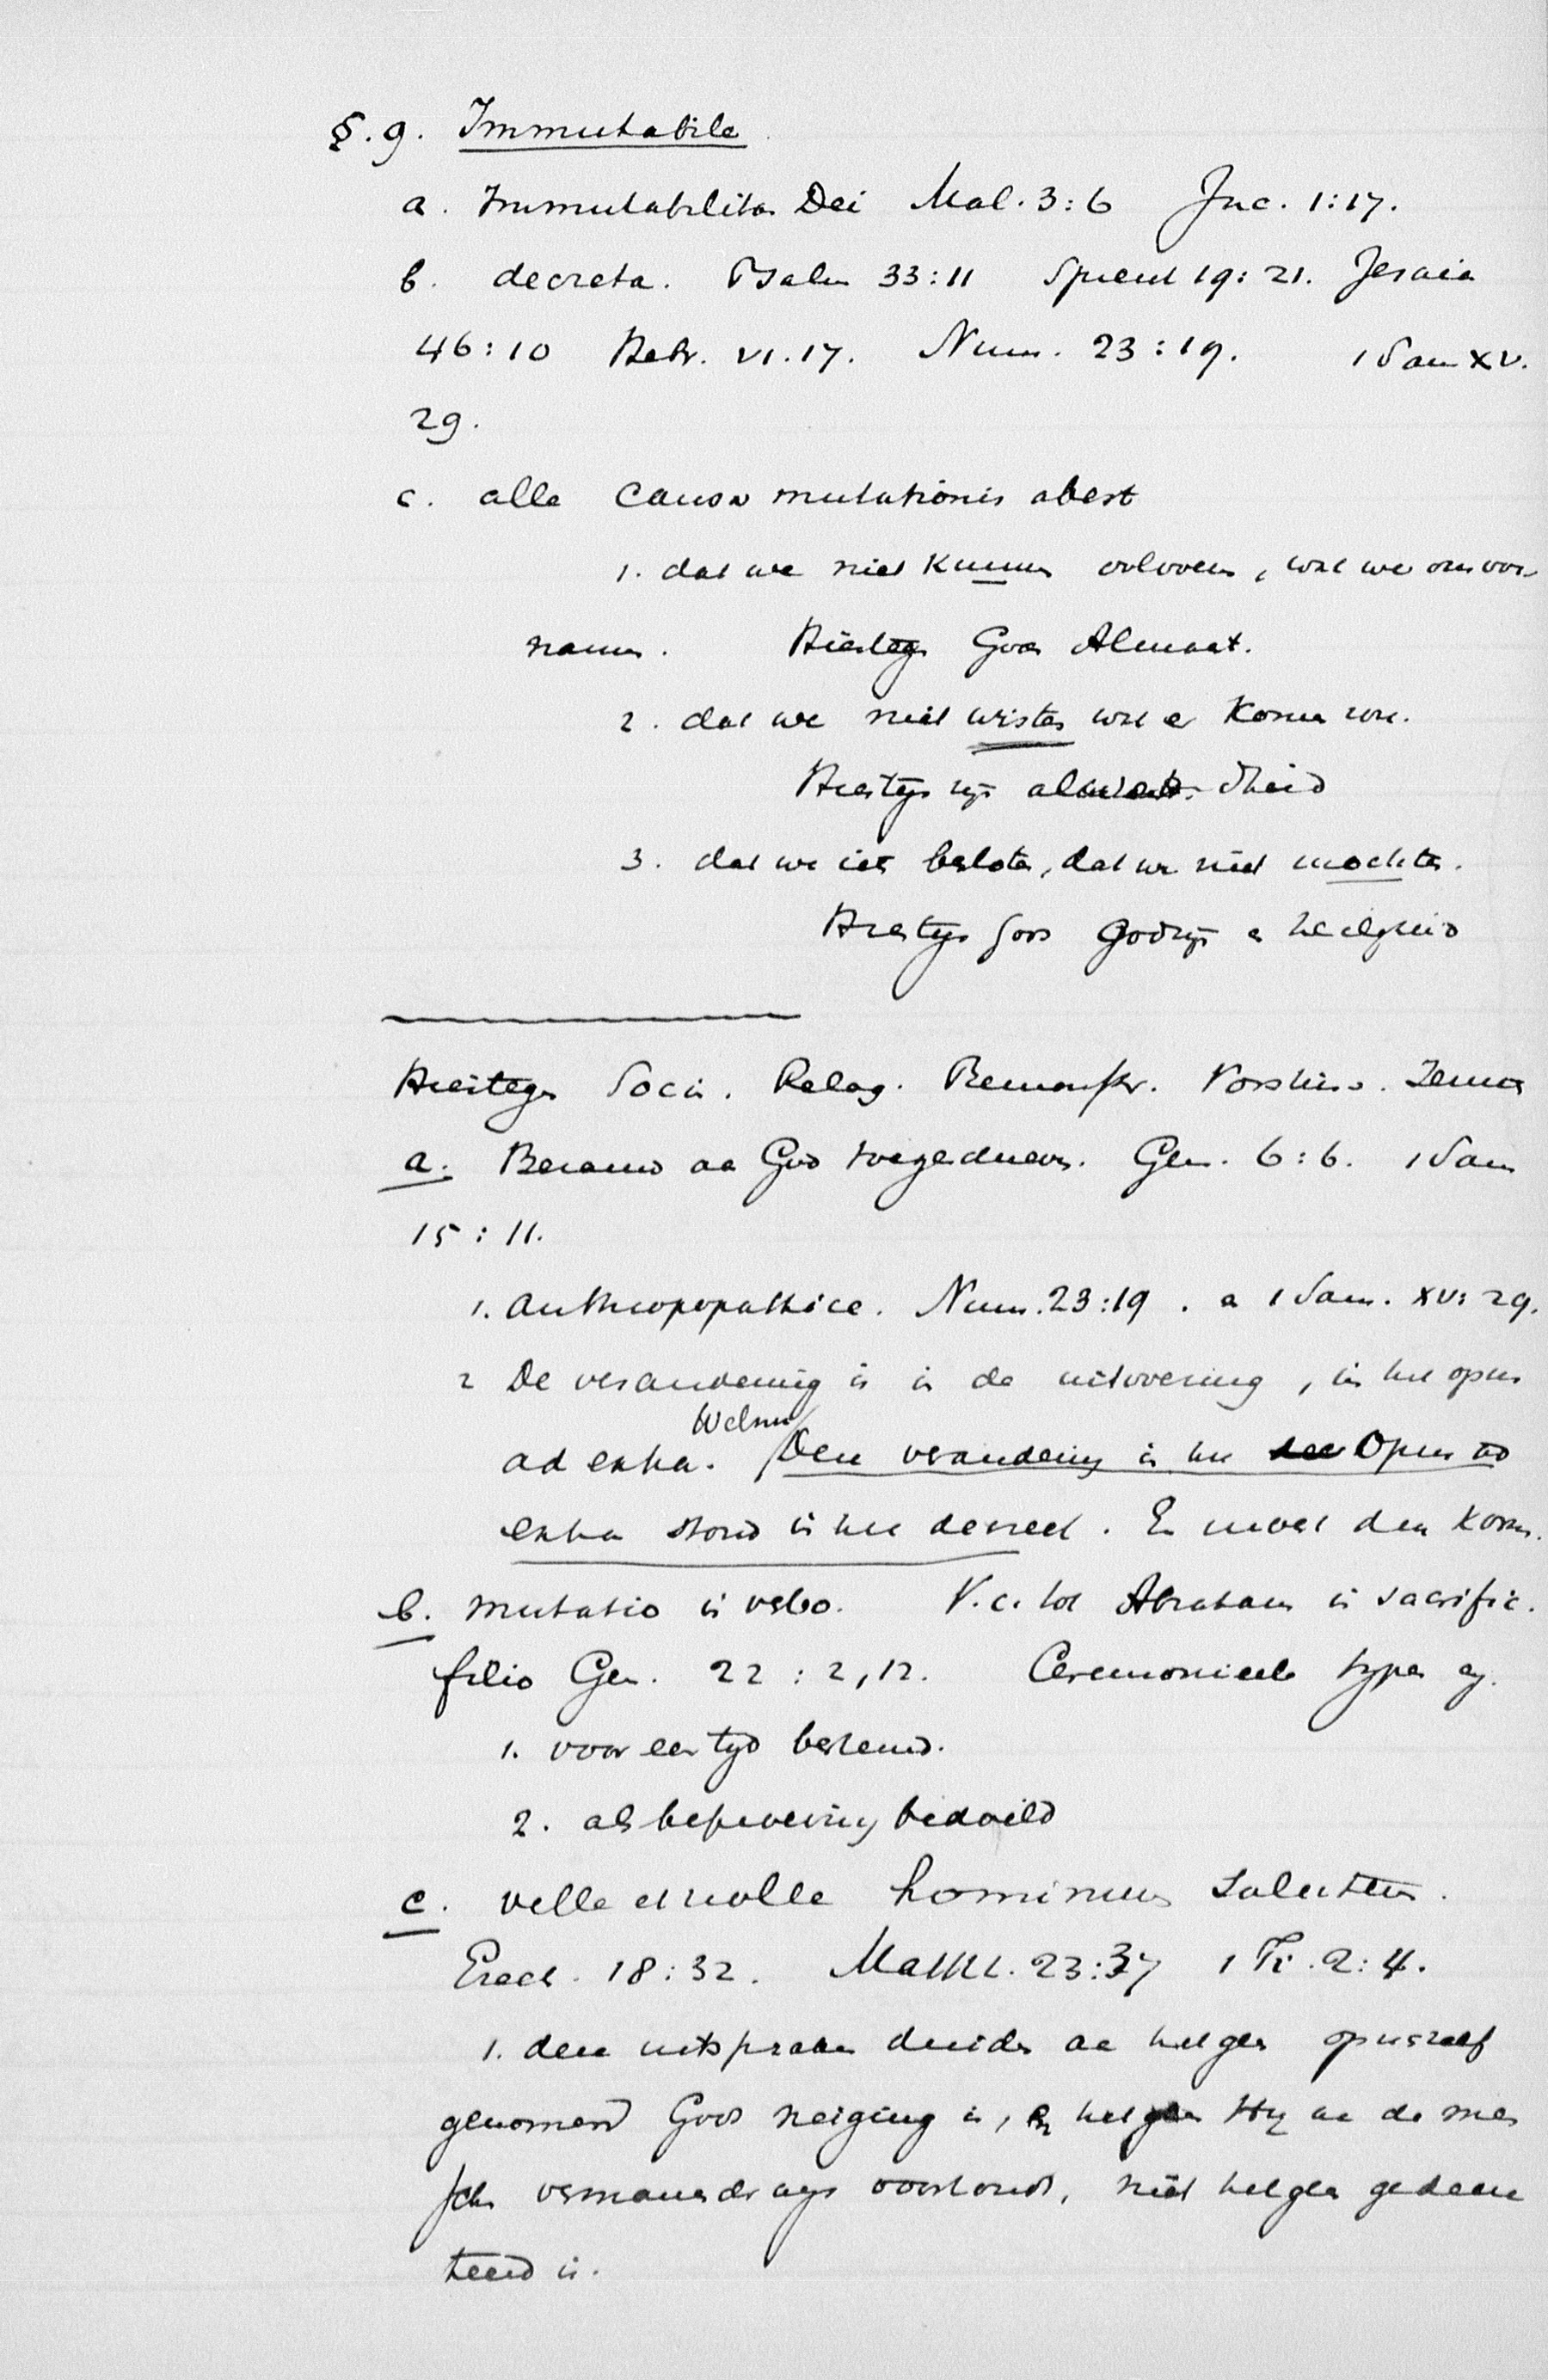 §. 9. Immutabile
a. Immutabilitas Dei Mal. 3:6 Jac. 1:17.
b. decreta. Psalm 33:11 Spreuk 19:21. Jesaia
46:10 Hebr. VI.17. Num. 23:19. 1 Sam XV.
29.
c. alle causa mutationis abest
1. dat we niet kunnen volvoeren, wat we ons voor-
namen. Hiertegen Gods Almacht.
2. dat we niet wisten wat er komen zou.
Hiertegen zijn alwetendheid
3. dat we iets besloten, dat we niet mochten.
Hiertegen Gods en heiligheid
Hiertegen Socin. Pelag. Remonstr. Vorstius.
a. Berouw aan God toegeschreven. Gen. 6:6. 1 Sam
15:11.
1. anthropopathice. Num. 23:19. en 1 Sam. XV:29.
2 De verandering is in de uitvoering, in het opus
ad extra. Welnu Deze verandering in het opus ad
extra stond in het decreet. En moet dan komen.
b. mutatio in verbo. V.c. tot Abraham in sacrific.
filio Gen. 22:2,12. Ceremonieele typen
1. voor een tijd bestemd.
2. als beproeving bedoeld
c. velle et nolle hominum salutem.
Ezech. 18:32. Matth. 23:37 1 Ti. 2:4.
1. deze uitspraken duiden aan hetgeen op zichzelf
genomen Gods neiging is, en hetgeen Hij aan de men
schen vermanenderwijs voorhoudt, niet hetgeen gedecre
teerd is.